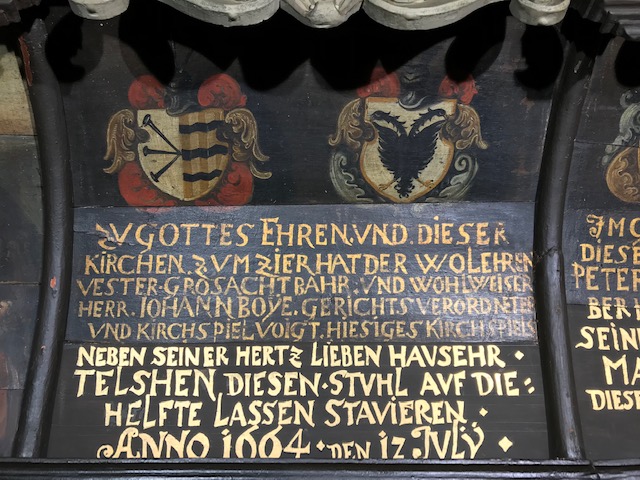 ZU GOTTES EHREN.UND.DIESER
KIRCHEN.ZUM ZIER HAT DER WOLEHREN
VESTER.GROSACHTBAHR.UND WOHLWEISER
HERR.IOHANN BOYE.GERICHTS VERORDNETER
UND KIRCHSPIEL VOIGT.HIESIGES KIRCHSPIELS
NEBEN SEINER HERTZ LIEBEN HAUSEHR ·
TELSHEN DIESEN·STUHL AUF DIE:
HELFTE LASSEN STAVIEREN ·
ANNO 1664 · DEN 12 JULY ·
DIESE
PETER
SEIN
MA
DIESE